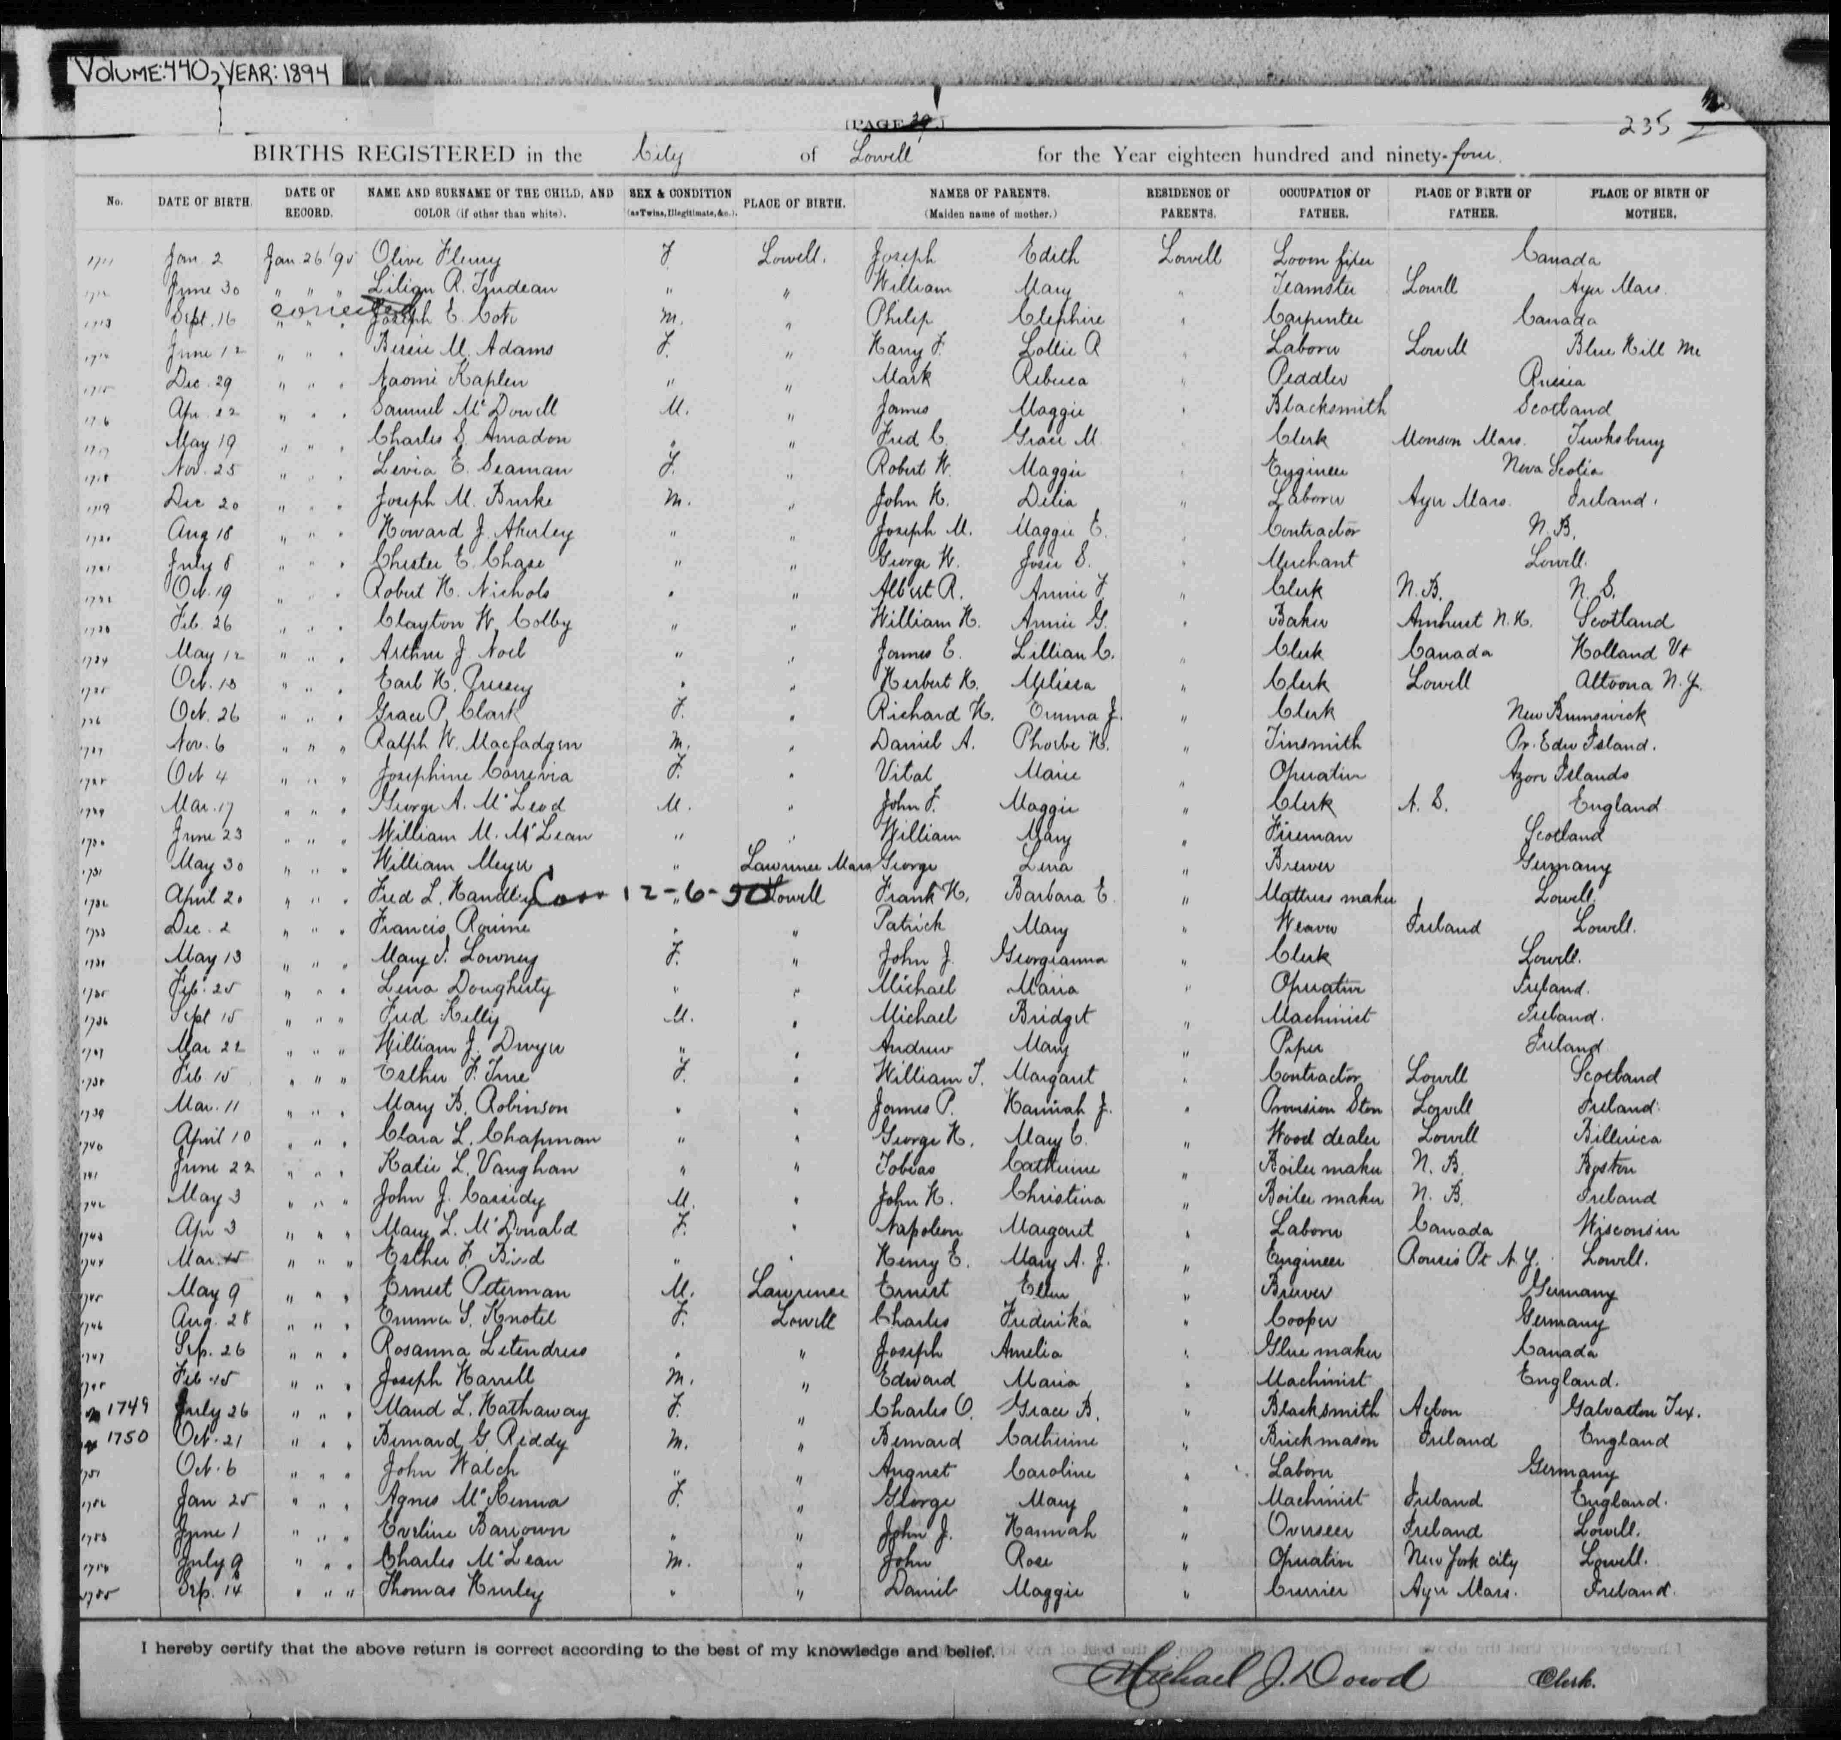 VOLUME: 440, YEAR: 1894
[PAGE 39.]
235
BIRTHS REGISTERED in the City of Lowell for the Year eighteen hundred and ninety-four.
No. DATE OF BIRTH. DATE OF RECORD. NAME AND SURNAME OF THE CHILD, AND COLOR (if other than white). SEX & CONDITION (as Twins, Illegitimate, &c.). PLACE OF BIRTH. NAMES OF PARENTS. (Maiden name of mother.) RESIDENCE OF PARENTS. OCCUPATION OF FATHER. PLACE OF BIRTH OF FATHER. PLACE OF BIRTH OF MOTHER.
1711 Jan. 2 Jan 26 '95 Olive Fleury F. Lowell. Joseph Edith Lowell Loom fixer Canada
1712 June 30 " " " Lilian R. Trudeau " " William Mary " Teamster Lowell Ayer Mass.
corrected
1713 Sept. 16 " " " Joseph E. Cote M. " Philip Clephire " Carpenter Canada
1714 June 12 " " " Bessie M. Adams F. " Harry F. Lottie R " Laborer Lowell Blue Hill Me
1715 Dec. 29 " " " Naomi Kaplen " " Mark Rebecca " Peddler Russia
1716 Apr. 22 " " " Samuel McDowell M. " James Maggie " Blacksmith Scotland
1717 May 19 " " " Charles S. Amadon " " Fred C. Grace M " Clerk Monson Mass. Tewksbury
1718 Nov. 25 " " " Levia E. Seaman F. " Robert W. Maggie " Engineer Nova Scotia
1719 Dec 20 " " " Joseph M. Burke M. " John H. Delia " Laborer Ayer Mass. Ireland.
1720 Aug 18 " " " Howard J. Akerley " " Joseph M. Maggie E. " Contractor N.B.
1721 July 8 " " " Chester E. Chase " " George W. Josie S. " Merchant Lowell.
1722 Oct. 19 " " " Robert H. Nichols " " Albert R. Annie F " Clerk N.B. N.S.
1723 Feb. 26 " " " Clayton W. Colby " " William H. Annie G. " Baker Amherst N.H. Scotland
1724 May 12 " " " Arthur J. Noel " " James E. Lillian C. " Clerk Canada Holland Vt
1725 Oct. 13 " " " Earl H. Pressey " " Herbert H. Melissa " Clerk Lowell Altoona N.Y.
1726 Oct. 26 " " " Grace P. Clark F. " Richard H. Emma J. " Clerk New Brunswick
1727 Nov. 6 " " " Ralph W. Macfadgen M. " Daniel A. Phoebe H. " Tinsmith Pr. Edw Island.
1728 Oct 4 " " " Josephine Correvia F. " Vital Marie " Operative Azore Islands
1729 Mar. 17 " " " George A. McLeod M. " John F. Maggie " Clerk N.S. England
1730 June 23 " " " William M. McLean " " William Mary " Fireman Scotland
1731 May 30 " " " William Meyer " Lawrence Mass George Lena " Brewer Germany
1732 April 20 " " " Fred L. Handley Corr 12-6-50 " Lowell Frank H. Barbara E. " Mattress maker Lowell.
1733 Dec. 2 " " " Francis Rourine " " Patrick Mary " Weaver Ireland Lowell.
1734 May 13 " " " Mary F. Lowney F. " John J. Georgianna " Clerk Lowell.
1735 Feb. 25 " " " Lena Dougherty " " Michael Maria " Operative Ireland.
1736 Sept 15 " " " Fred Kelly M. " Michael Bridget " Machinist Ireland.
1737 Mar 22 " " " William J. Dwyer " " Andrew Mary " Piper Ireland
1738 Feb 15 " " " Esther F. True F. " William T. Margaret " Contractor Lowell Scotland
1739 Mar. 11 " " " Mary B. Robinson " " James P. Hannah J. " Provision Store Lowell Ireland
1740 April 10 " " " Clara L. Chapman " " George H. Mary E. " Wood dealer Lowell Billerica
1741 June 22 " " " Katie L. Vaughan " " Tobias Catherine " Boiler maker N.B. Boston
1742 May 3 " " " John J. Cassidy M. " John H. Christina " Boiler maker N.B. Ireland
1743 Apr 3 " " " Mary L. McDonald F. " Napoleon Margaret " Laborer Canada Wisconsin
1744 Mar. 15 " " " Esther F. Bird " " Henry E. Mary A. J. " Engineer Rouses Pt N.Y. Lowell.
1745 May 9 " " " Ernest Peterman M. Lawrence Ernest Ellen " Brewer Germany
1746 Aug. 28 " " " Emma S. Knotel F. Lowell Charles Frederika " Cooper Germany
1747 Sep. 26 " " " Rosanna Letendress " " Joseph Amelia " Glue maker Canada
1748 Feb. 15 " " " Joseph Harrell M. " Edward Maria " Machinist England.
1749 July 26 " " " Maud L. Hathaway F. " Charles O. Grace B. " Blacksmith Acton Galvaston Tex.
1750 Oct. 21 " " " Bernard G Reddy M. " Bernard Catherine " Brickmason Ireland England
1751 Oct. 6 " " " John Walch " " August Caroline " Laborer Germany
1752 Jan 25 " " " Agnes McKenna F. " George Mary " Machinist Ireland England.
1753 June 1 " " " Eveline Barrown " " John J. Hannah " Overseer Ireland Lowell.
1754 July 9 " " " Charles McLean M. " John Rose " Operative New York city Lowell.
1755 Sep. 14 " " " Thomas Hurley " " Daniel Maggie " Currier Ayer Mass. Ireland.
I hereby certify that the above return is correct according to the best of my knowledge and belief.
Michael J. Dowd Clerk.